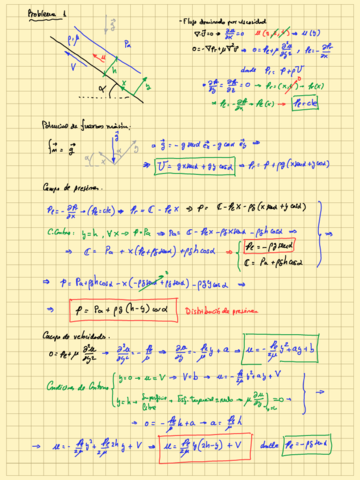 Problema 1
- Flujo dominado por viscosidad
∇·v̄ = 0 → ∂u/∂x = 0 → u(x, y, z) → u(y)
0 = -∇Pr + μ∇²v̄ → 0 = Pe + μ ∂²u/∂y², Pe = -∂Pr/∂x
donde Pr = P + ρU
∂Pr/∂y = ∂Pr/∂z = 0 → Pr(x, y, z) → Pr(x)
→ Pe = -∂Pr/∂x = Pe(x) → Pe = cte
ρ, μ
Pa
g
u
h
V
α
x
y
Potencial de fuerzas másicas:
f̄m = ḡ
→ ḡ = -g senα ēx - g cosα ēy →
→ U = gx senα + gy cosα → Pr = P + ρg(x senα + y cosα)
Campo de presiones.
Pe = -∂Pr/∂x → (Pe = cte) → Pr = C - Pe x → P = C - Pe x - ρg(x senα + y cosα)
C. Contorno: y = h, ∀x → P = Pa → Pa = C - Pe x - ρgx senα - ρgh cosα →
→ C = Pa + x(Pe + ρg senα) + ρgh cosα → { Pe = -ρg senα
C = Pa + ρgh cosα
→ P = Pa + ρgh cosα - x(-ρg senα + ρg senα) - ρgy cosα →
→ P = Pa + ρg(h-y) cosα Distribución de presiones
Campo de velocidades.
0 = Pe + μ ∂²u/∂y² → ∂²u/∂y² = -Pe/μ → ∂u/∂y = -Pe/μ y + a → u = -Pe/2μ y² + ay + b
Condiciones de Contorno { y = 0 → u = V → V = b → u = -Pe/2μ y² + ay + V
y = h → Superficie libre → Esf. tangencial nulo → μ ∂u/∂y)y=h = 0 →
→ 0 = -Pe/μ h + a → a = Pe/μ h
→ u = -Pe/2μ y² + Pe/2μ 2hy + V → u = Pe/2μ y(2h-y) + V donde Pe = -ρg senα